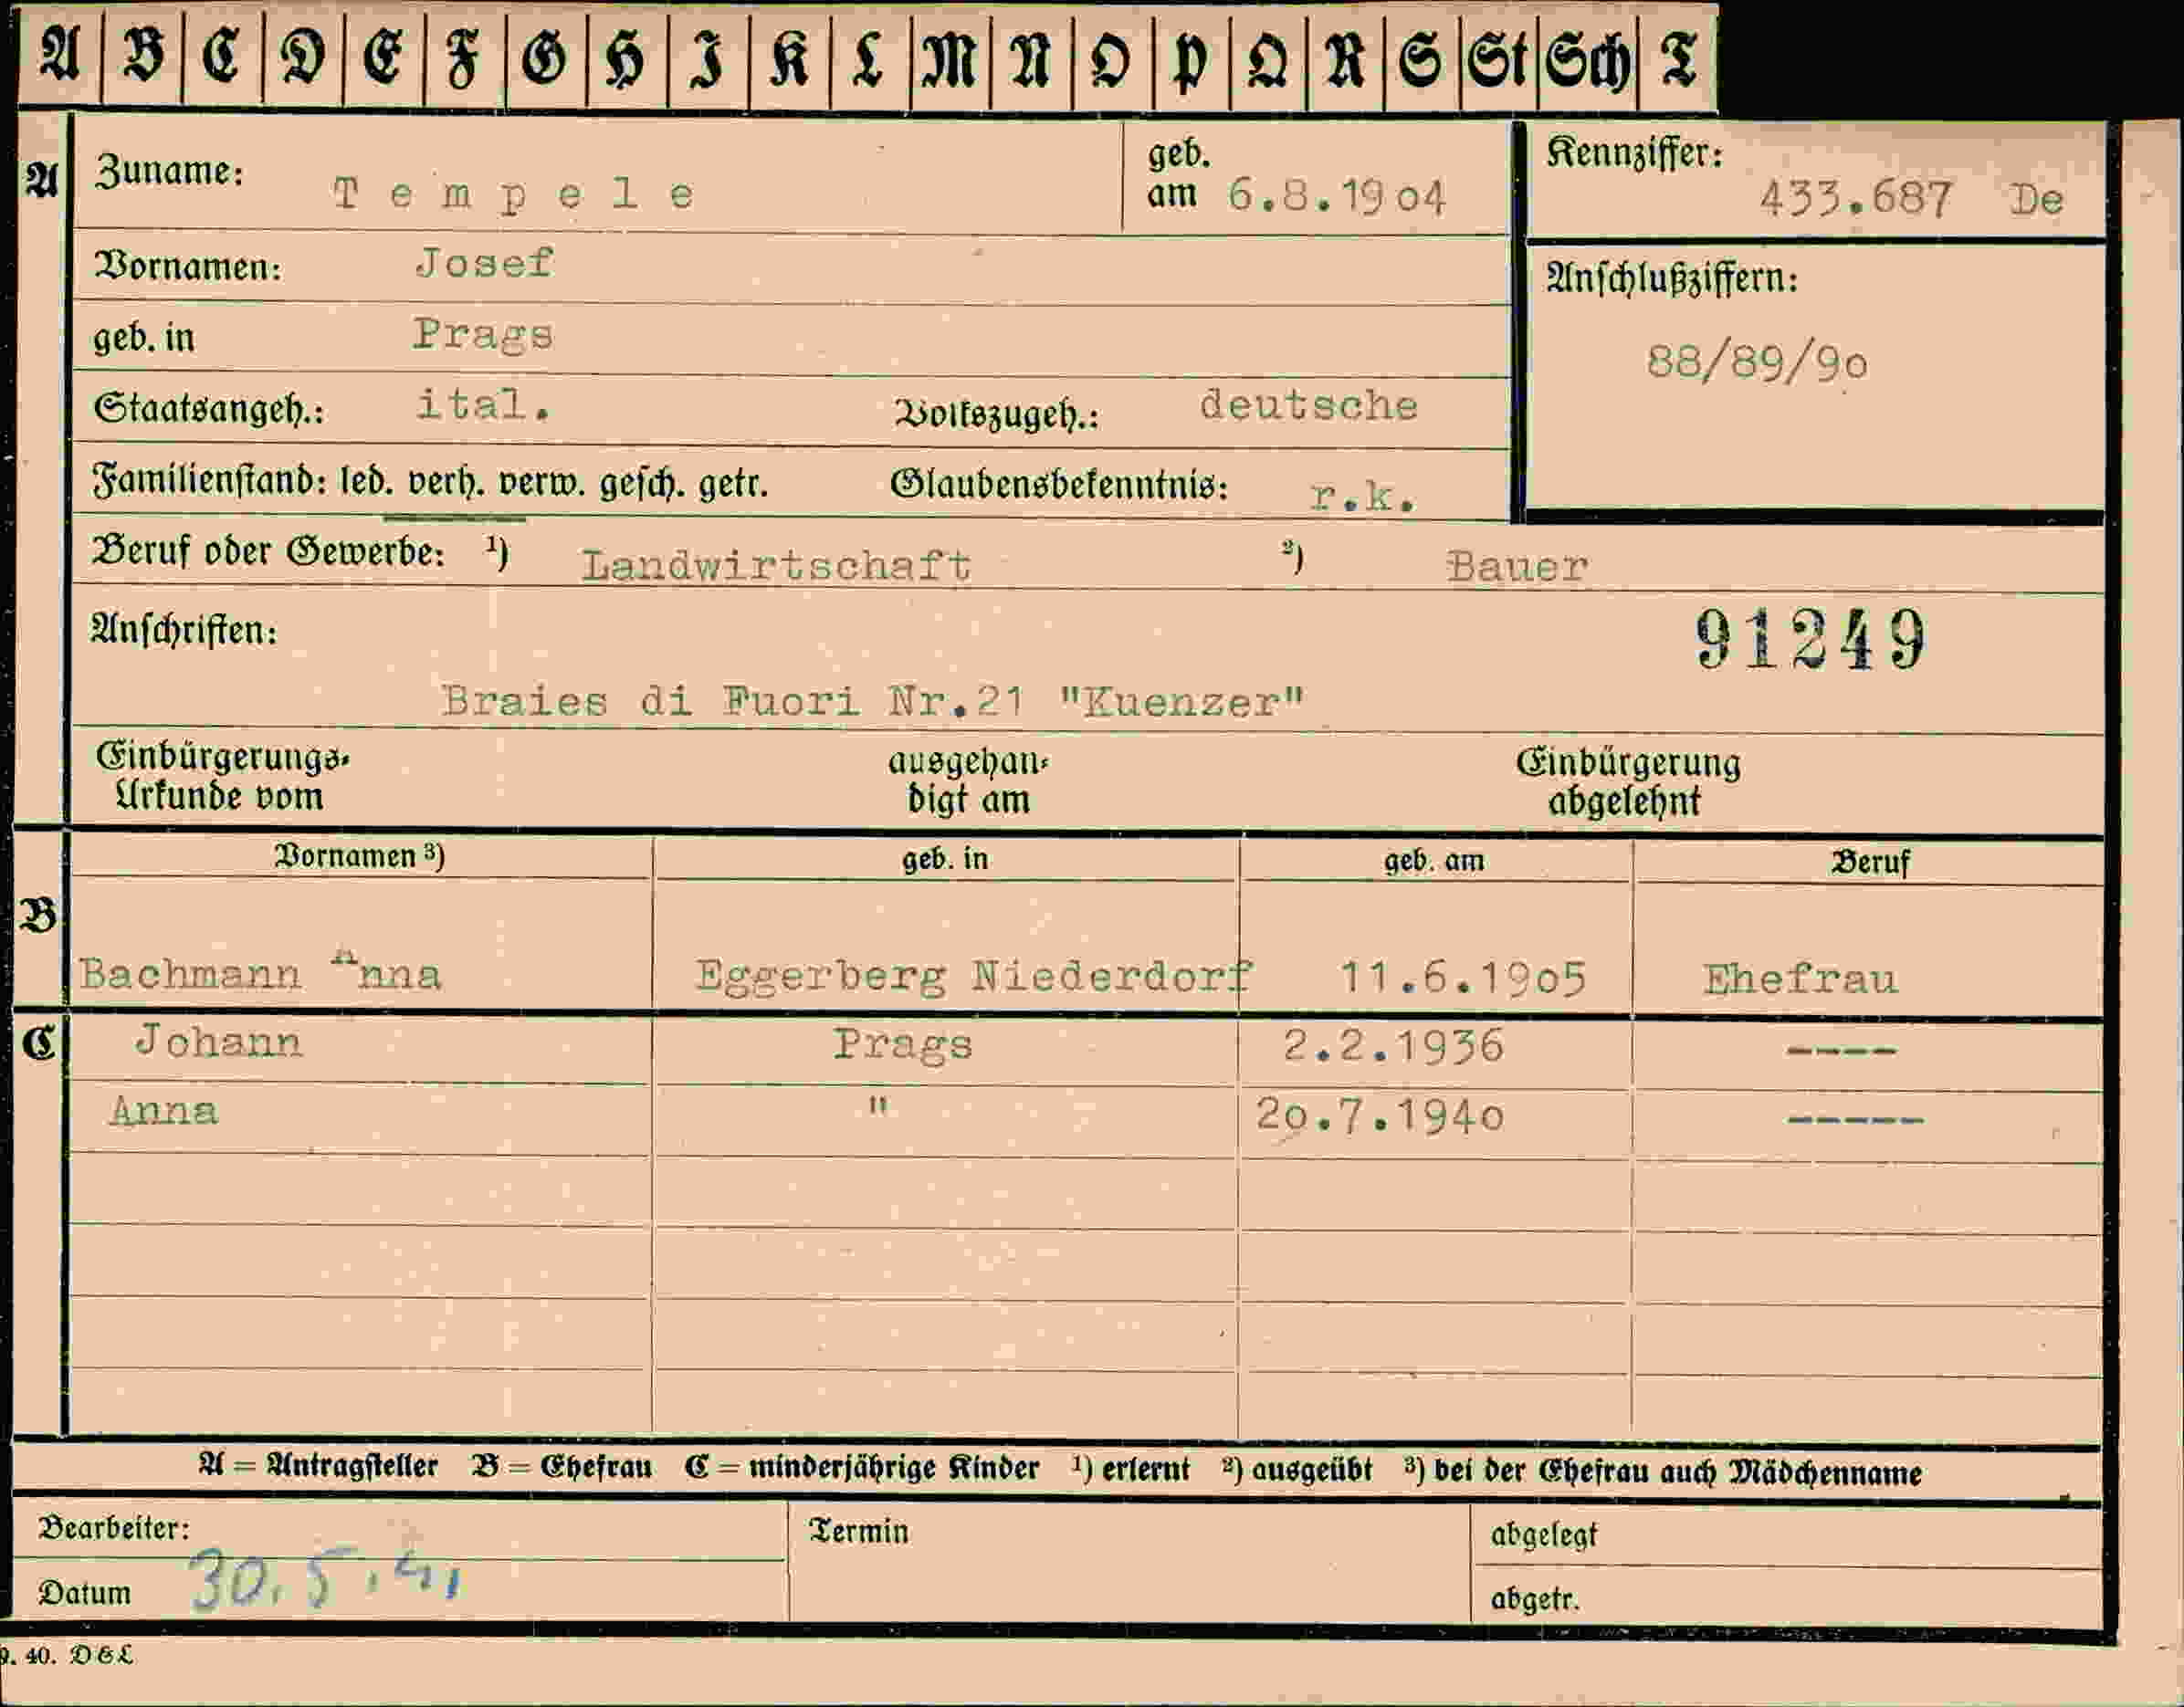 A B C D E F G H I K L M N O P Q R S St Sch T
A Zuname: Tempele geb. am 6.8.1904 Kennziffer: 433.687 De
Vornamen: Josef
Anschlußziffern:
geb. in Prags
88/89/90
Staatsangeh.: ital. Volkszugeh.: deutsche
Familienstand: led. verh. verw. gesch. getr. Glaubensbekenntnis: r.k.
Beruf oder Gewerbe: ¹) Landwirtschaft ²) Bauer
Anschriften: 91249
Braies di Fuori Nr.21 "Kuenzer"
Einbürgerungs- ausgehan- Einbürgerung
Urkunde vom digt am abgelehnt
Vornamen ³) geb. in geb. am Beruf
B
Bachmann Anna Eggerberg Niederdorf 11.6.1905 Ehefrau
C Johann Prags 2.2.1936 ----
Anna " 20.7.1940 -----
A = Antragsteller B = Ehefrau C = minderjährige Kinder ¹) erlernt ²) ausgeübt ³) bei der Ehefrau auch Mädchenname
Bearbeiter: Termin abgelegt
Datum 30.5.41 abgetr.
9. 40. D&L